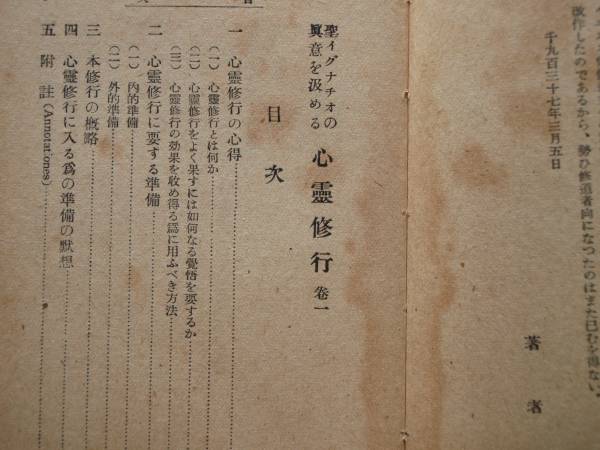 改作したのであるから、勢ひ修道者向になつたのはまた已むを得ない
千九百三十七年三月五日
著者
聖イグナチオの
眞意を汲める
心靈修行 卷一
目次
一 心靈修行の心得
(一) 心靈修行とは何か
(二) 心靈修行をよく果すには如何なる覺悟を要するか
(三) 心靈修行の効果を收め得る爲に用ふべき方法
二 心靈修行に要する準備
(一) 內的準備
(二) 外的準備
三 本修行の槪略
四 心靈修行に入る爲の準備の默想
五 附註(Annotationes)